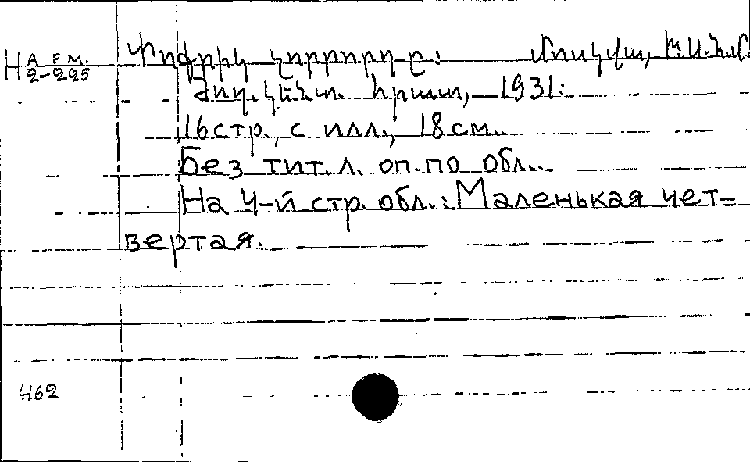 A F M.
H 2-295
Փոքրիկ չորրորդը: Մոսկվա,
հրատ, 1931:
16 стр., с илл., 18 см.
Без тит. л. оп. по обл.
На 4-й стр. обл.: Маленькая чет-
вертая.
462